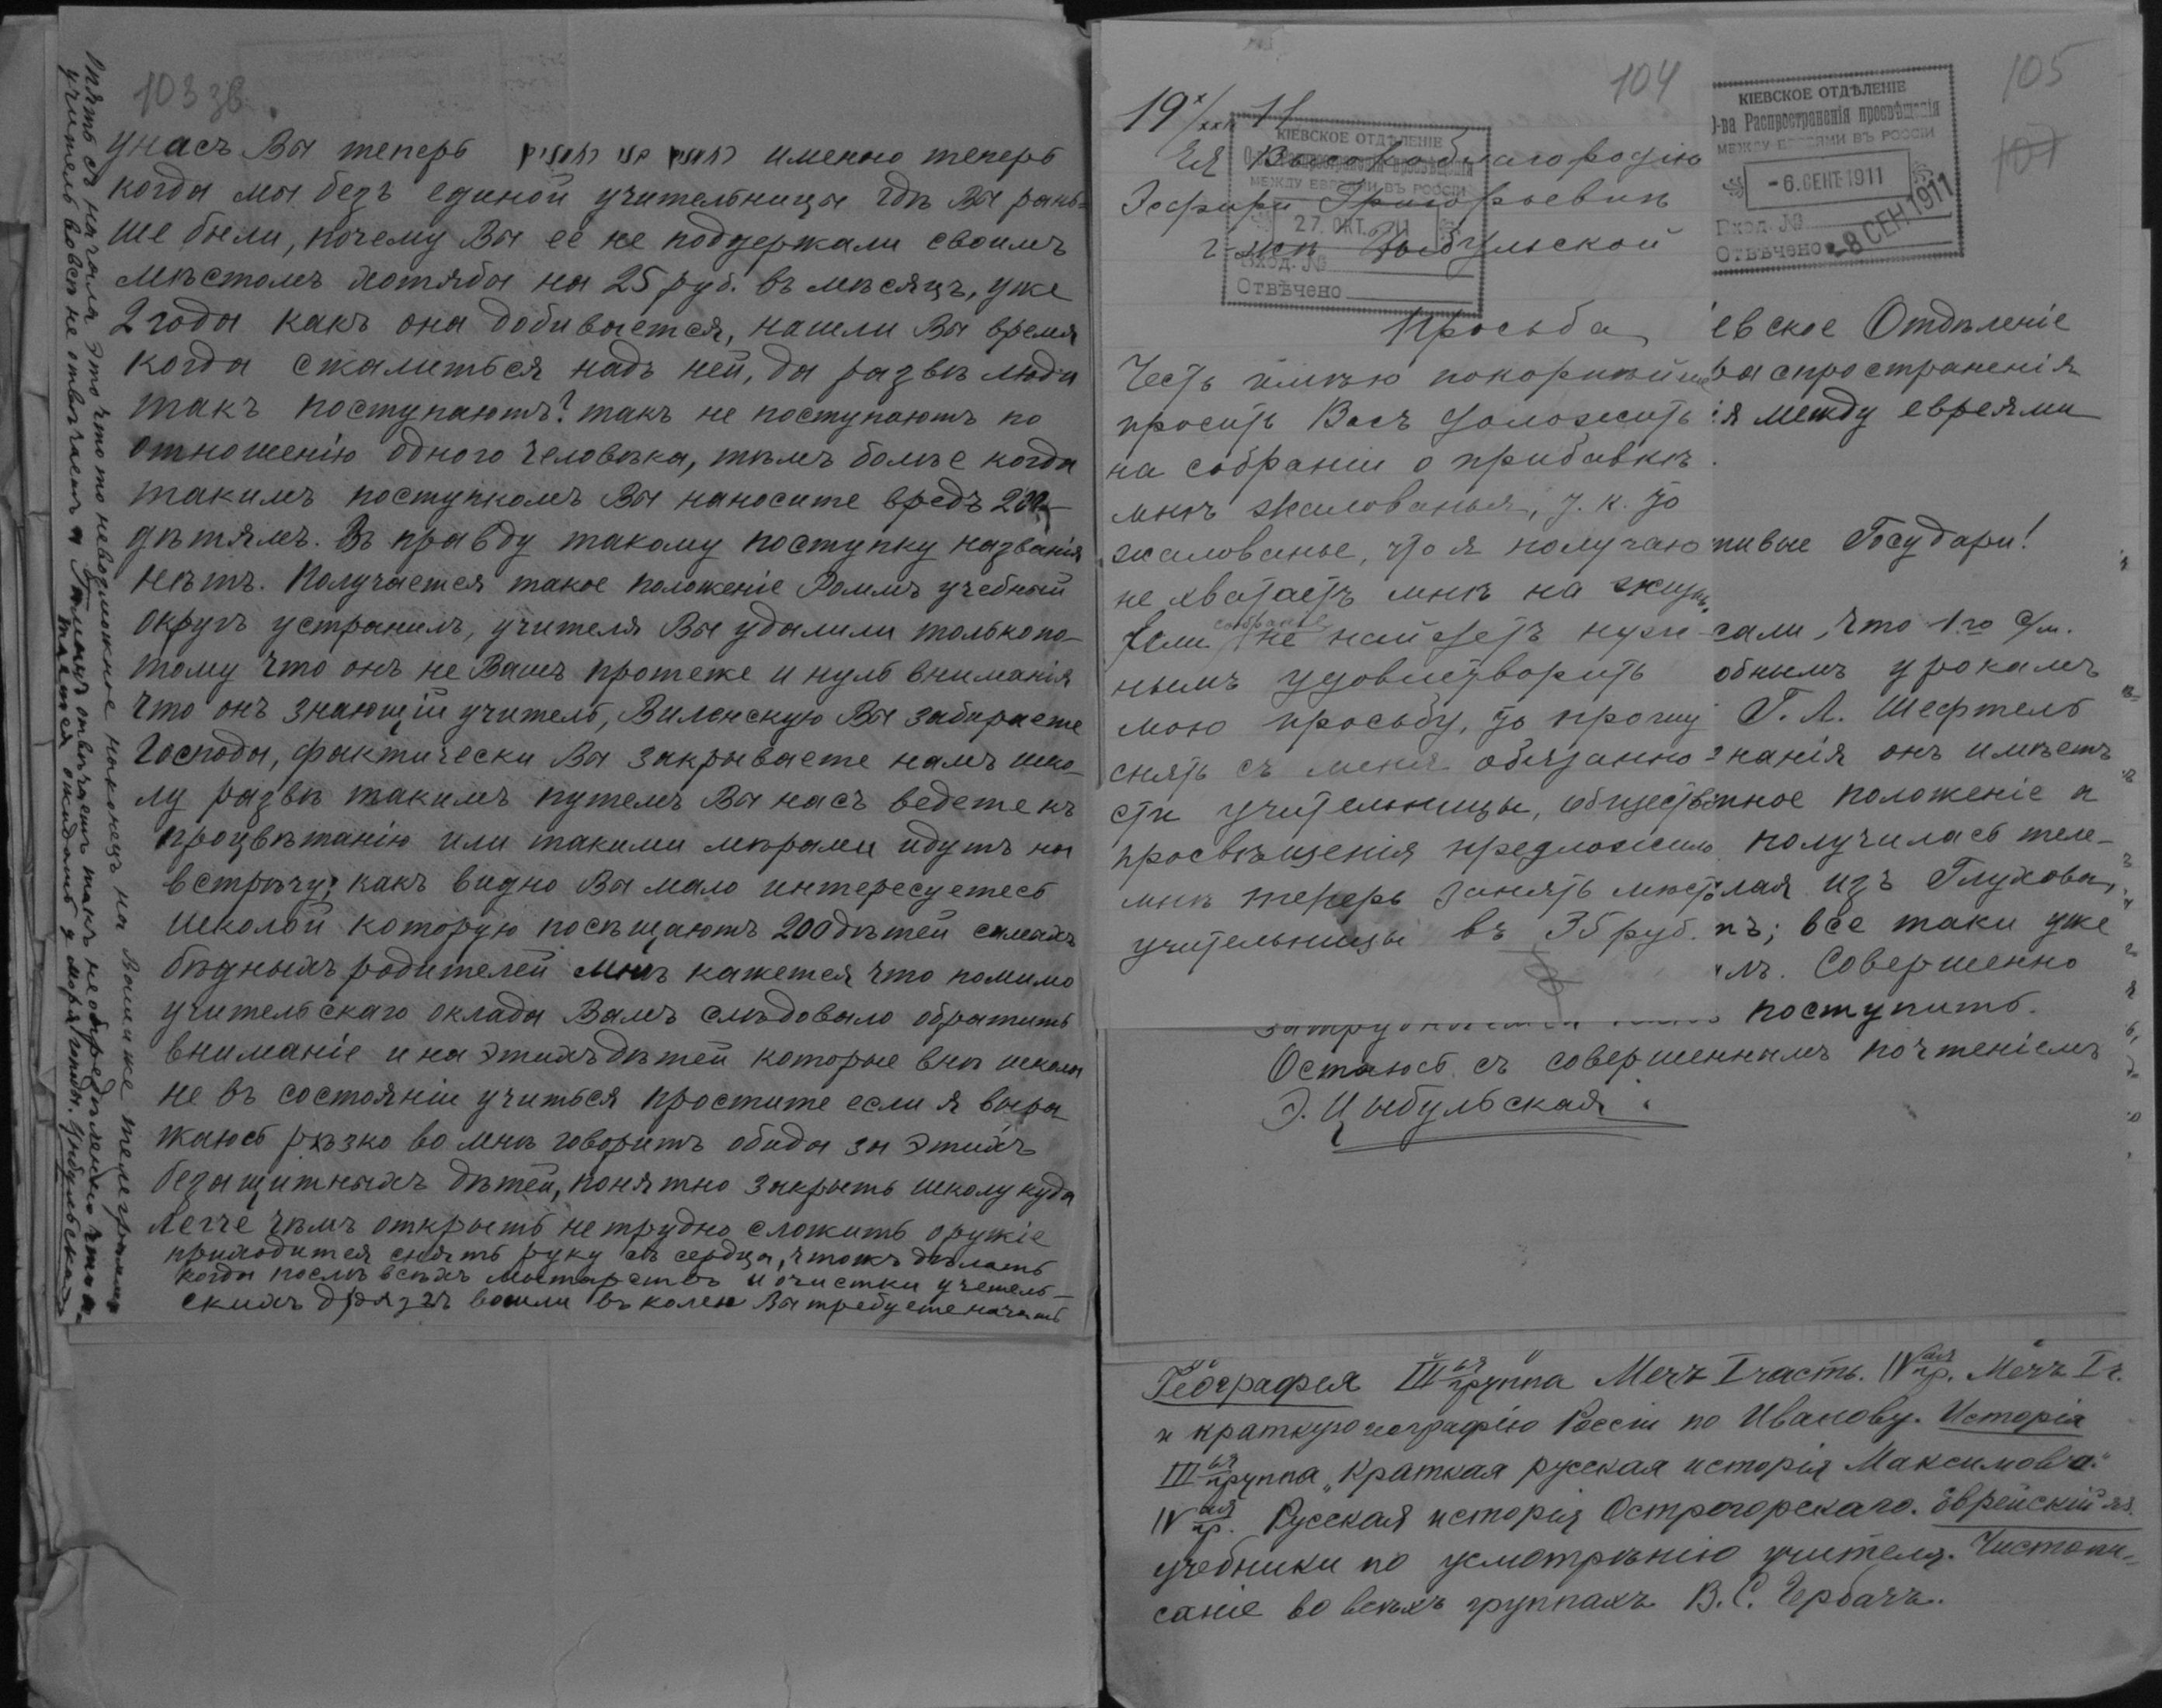 103 зв.
у насъ Вы теперь именно теперь
когда мы безъ единой учительницы гдѣ Вы рань-
ше были, почему Вы ее не поддержали своимъ
мѣстомъ хотябы на 25 руб. въ мѣсяцъ, уже
2 года какъ она добивается, нашли Вы время
когда сжалиться надъ ней, да развѣ люди
такъ поступаютъ? такъ не поступаютъ по
отношенію одного человѣка, тѣмъ более когда
такимъ поступкомъ Вы наносите вредъ 200
дѣтямъ. Въ правду такому поступку названія
нѣтъ. Получается такое положеніе Роммъ учебный
округъ устранилъ, учителя Вы удалили только по-
тому что онъ не Вашъ протеже и нуль вниманія
что онъ знающій учитель, Виленскую Вы забираете
Господа, фактически Вы закрываете намъ шко-
лу развѣ такимъ путемъ Вы насъ ведете къ
процвѣтанію или такими мѣрами идутъ на
встрѣчу; какъ видно Вы мало интересуетесь
школой которую посѣщаютъ 200 дѣтей самыхъ
бѣдныхъ родителей мнѣ кажется что помимо
учительскаго оклада Вамъ слѣдовало обратить
вниманіе и на этихъ дѣтей которые внѣ школы
не въ состояніи учиться простите если я выра-
жаюсь рѣзко во мнѣ говоритъ обида за этихъ
безащитныхъ дѣтей, понятно закрыть школу куда
легче чѣмъ открыть не трудно сложить оружіе
приходится снять руку съ сердца, чтожъ дѣлать
когда послѣ всѣхъ мытарствъ и очистки учетель-
скихъ дрязгъ вошли въ колею Вы требуете начать
Опять съ начала это что то невозможное наконецъ на Ваши же телеграммы
учитель вовсе не отвѣчаетъ а Галицъ отвѣчаетъ такъ неопредѣленно что а-
таетея ожидать у моря погоды. Цыбульская
104
19 X/XXII 11
КІЕВСКОЕ ОТДѢЛЕНІЕ
О-ва Распространенія просвѣщенія
МЕЖДУ ЕВРЕЯМИ ВЪ РОССІИ
27. ОКТ. 1911
Вход. №
Отвѣчено
Ея Высокоблагородію
Эсфири Григорьевнѣ
г-жѣ Цыбульской
Просьба
Честь имѣю покорнѣйше
просить Васъ доложить
на собраніи о прибавкѣ
мнѣ жалованья, т. к. то
жалованье, что я получаю
не хватаетъ мнѣ на жизнь.
Если собраніе не найдетъ нуж-
нымъ удовлетворить
мою просьбу, то прошу
снять съ меня обязанно-
сти учительницы, общество
просвѣщенія предложило
мнѣ теперь занять мѣсто
учительницы въ 35 руб.
105
107
КІЕВСКОЕ ОТДѢЛЕНІЕ
О-ва Распространенія просвѣщенія
МЕЖДУ ЕВРЕЯМИ ВЪ РОССІИ
-6.СЕНТ.1911
Вход. №
Отвѣчено -8 СЕН 1911
евское Отдѣленіе
распространенія
ія между евреями
тивые Государи!
сали, что 1го с/м.
обнымъ урокамъ
Г. Л. Шефтель
знанія онъ имѣетъ
нное положеніе а
получилась теле-
лая изъ Глухова,
ъ; все таки уже
лъ. Совершенно
поступить.
Остаюсь съ совершеннымъ почтеніемъ
Э. Цыбульская.
Географія III ья группа Мечъ I часть. IV ая гр. Мечъ I ч.
и краткую географію Россіи по Иванову. Исторія
III ья группа „Краткая русская исторія Максимова."
IV ая гр. Русская исторія Острогорскаго. Еврейскій яз.
учебники по усмотрѣнію учителя. Чистопи-
саніе во всѣхъ группахъ В. С. Гербачъ.